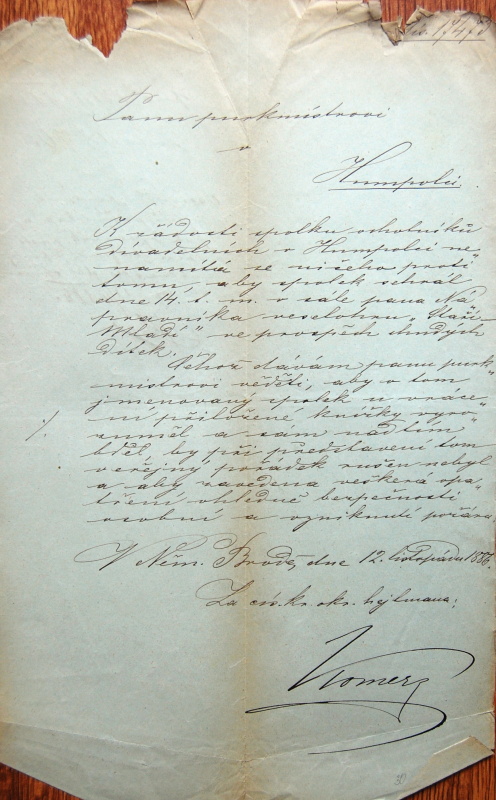 Panu purkmistrovi
v
Humpolci.
K žádosti spolku ochotníků
divadelních v Humpolci ne-
namítá se ničeho proti
tomu, aby spolek sehrál
dne 14. t. m. v sale pana Ná-
pravníka veselohru „Staří
Mladí" ve prospěch chudých
dítek.
Čehož dávám panu purk-
mistrovi věděti, aby o tom
jmenovaný spolek u vráce-
ní přiložené knížky vyro-
./.
zuměl a sám nad tím
bděl, by při představení tom
veřejný pořádek rušen nebyl
a aby zavedena veškerá opa-
tření ohledně bezpečnosti
osobní a vzniknutí požáru
V Něm. Brodě, dne 12. listopadu 1886.
Za cís. kr. okr. hejtmana: